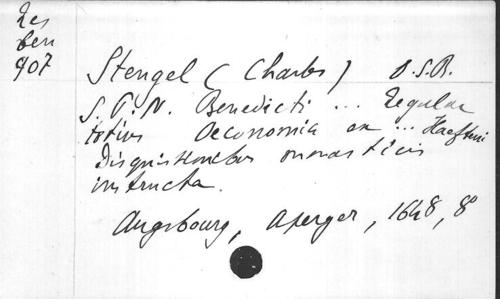 Res
ben
907
Stengel (Charles) O.S.B.
S.P.N. Benedicti ... Regulae
totius Oeconomia ex ... Haefteni
Disquisitionibus monasticis
instructa.
Augsbourg, Aperger, 1648, 8°